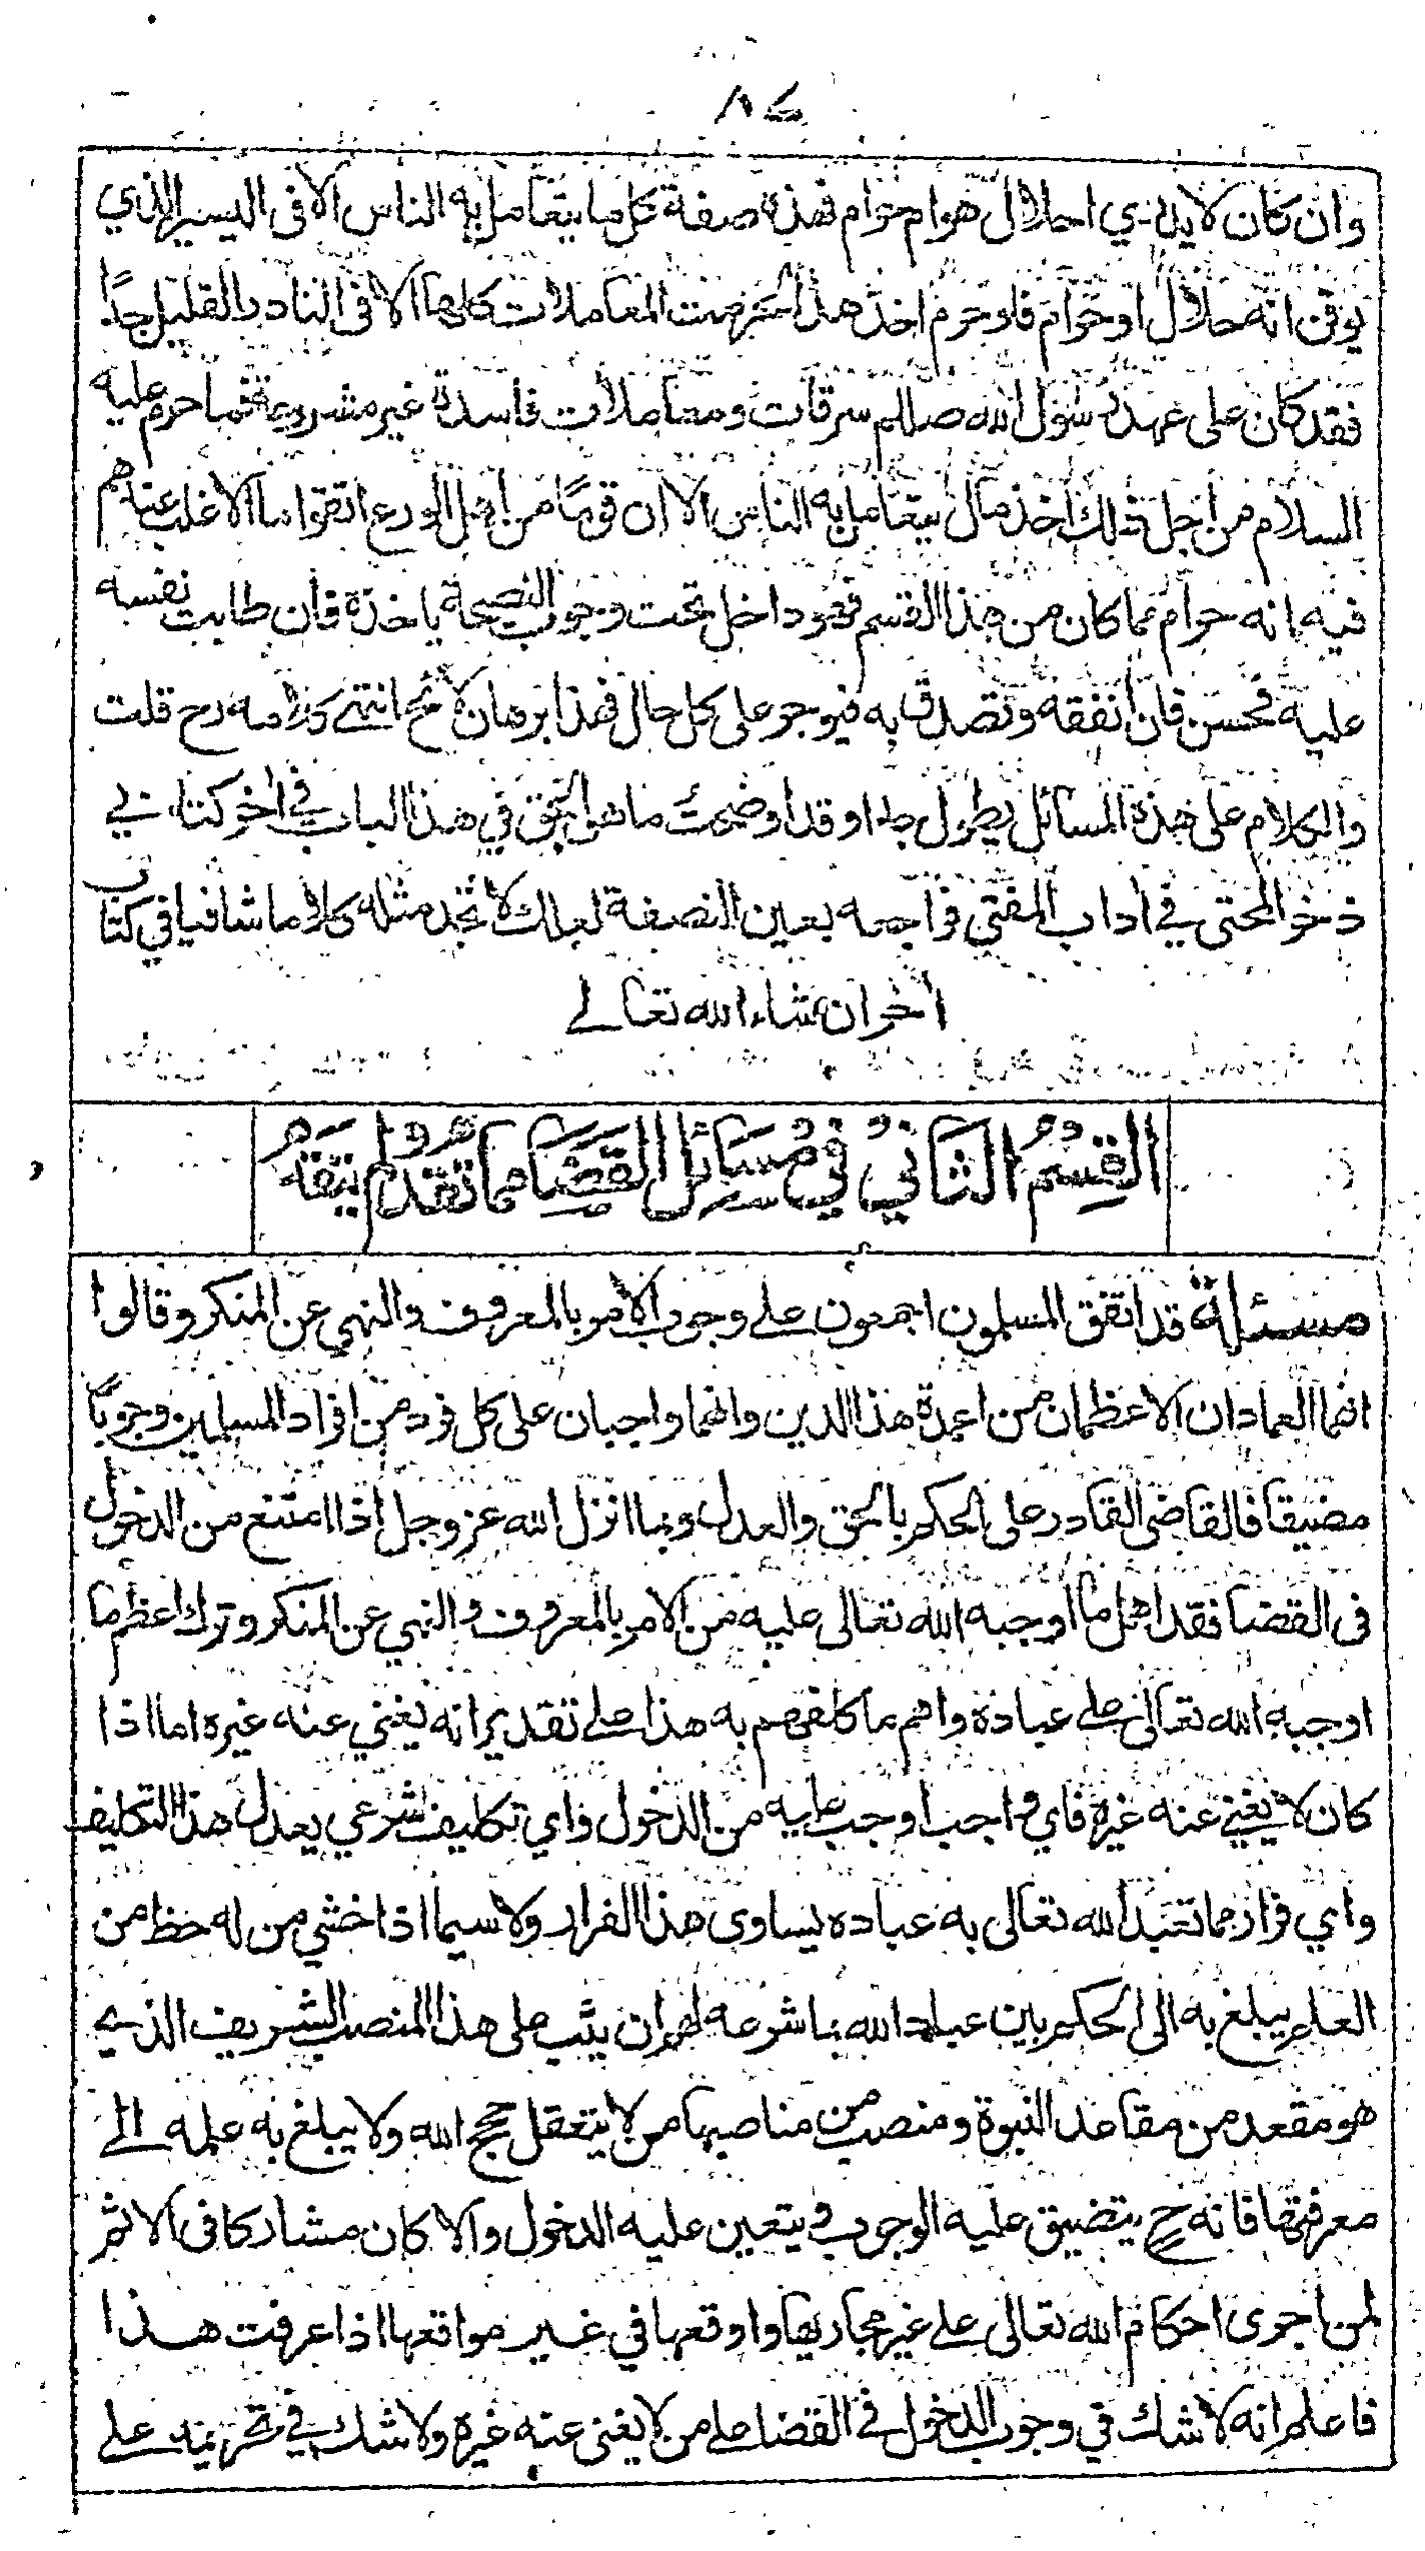 ٨٤
وان كان لا يدري احلال هوام حرام فهذه صفة كل ما يتعامل به الناس الا فى اليسير الذي
يوقن انه حلال او حرام فلو حرم اخذ هذا لحرمت المعاملات كلها الا فى النادر القليل جدًا
فقد كان على عهد رسول الله صللم سرقات ومعاملات فاسدة غير مشروعة فما حرم عليه
السلام من اجل ذلك اخذ مال يتعامل به الناس الا ان قومًا من اهل الورع اتقوا ما الاغلب عندهم
فيه انه حرام فما كان من هذا القسم فهو داخل تحت وجوب النصيحة ياخذه فان طابت نفسه
عليه فحسن فان انفقه وتصدق به فيوجر على كل حال فهذا برهان لائح انتهى كلامه رح قلت
والكلام على هذه المسائل يطول جدا وقد اوضحت ما هو الحق في هذا الباب في اخر كتابي
ذخر المحتى في اداب المفتي فراجعه بعين النصفة لعلك لا تجد مثله كلاما شافيا في كتاب
اخر ان شاء الله تعالى
القسم الثاني في مسائل القضا مما تقدم يتفقه
مسئلة قد اتفق المسلمون اجمعون على وجوب الامر بالمعروف والنهي عن المنكر وقالوا
انهما العمادان الاعظمان من اعمدة هذا الدين وانهما واجبان على كل فرد من افراد المسلمين وجوبًا
مضيقا فالقاضى القادر على الحكم بالحق والعدل وبما انزل الله عز وجل اذا امتنع من الدخول
فى القضا فقد اهمل ما اوجبه الله تعالى عليه من الامر بالمعروف والنهي عن المنكر وترك اعظم ما
اوجبه الله تعالى على عباده واهم ما كلفهم به هذا على تقدير انه يغني عنه غيره اما اذا
كان لا يغني عنه غيره فاي واجب اوجب عليه من الدخول واي تكليف شرعي يعدل هذا التكليف
واي فرار مما تعبد الله تعالى به عباده يساوى هذا الفرار ولا سيما اذا خشي من له حظ من
العلم يبلغ به الى الحكم بين عباد الله بما شرعه لهم ان يثب على هذا المنصب الشريف الذي
هو مقعد من مقاعد النبوة ومنصب من مناصبها من لا يتعقل حجج الله ولا يبلغ به علمه الى
معرفتها فانه ح يتضيق عليه الوجوب ويتعين عليه الدخول والا كان مشاركا فى الاثم
لمن اجرى احكام الله تعالى على غير مجاريها واوقعها في غير مواقعها اذا عرفت هذا
فاعلم انه لا شك في وجوب الدخول في القضا على من لا يغنى عنه غيره ولا شك في تحريمه على